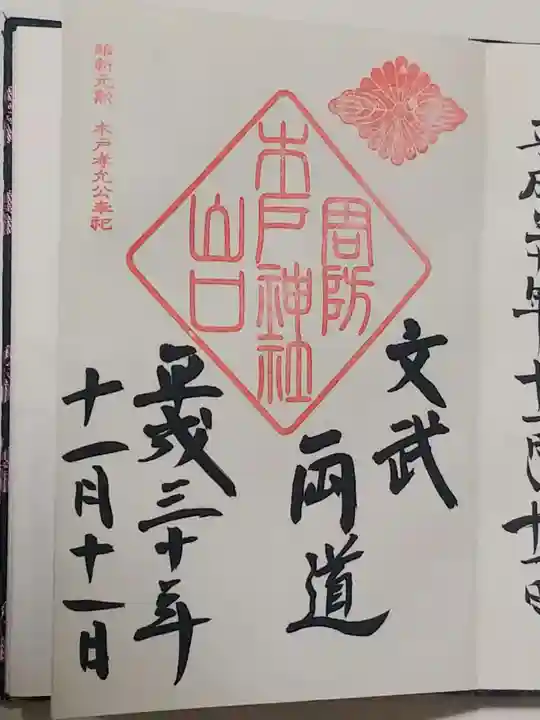 平成三十年十一月十一日
周防
木戸神社
山口
維新元勲 木戸孝允公奉祀
文武
両道
平成三十年
十一月十一日